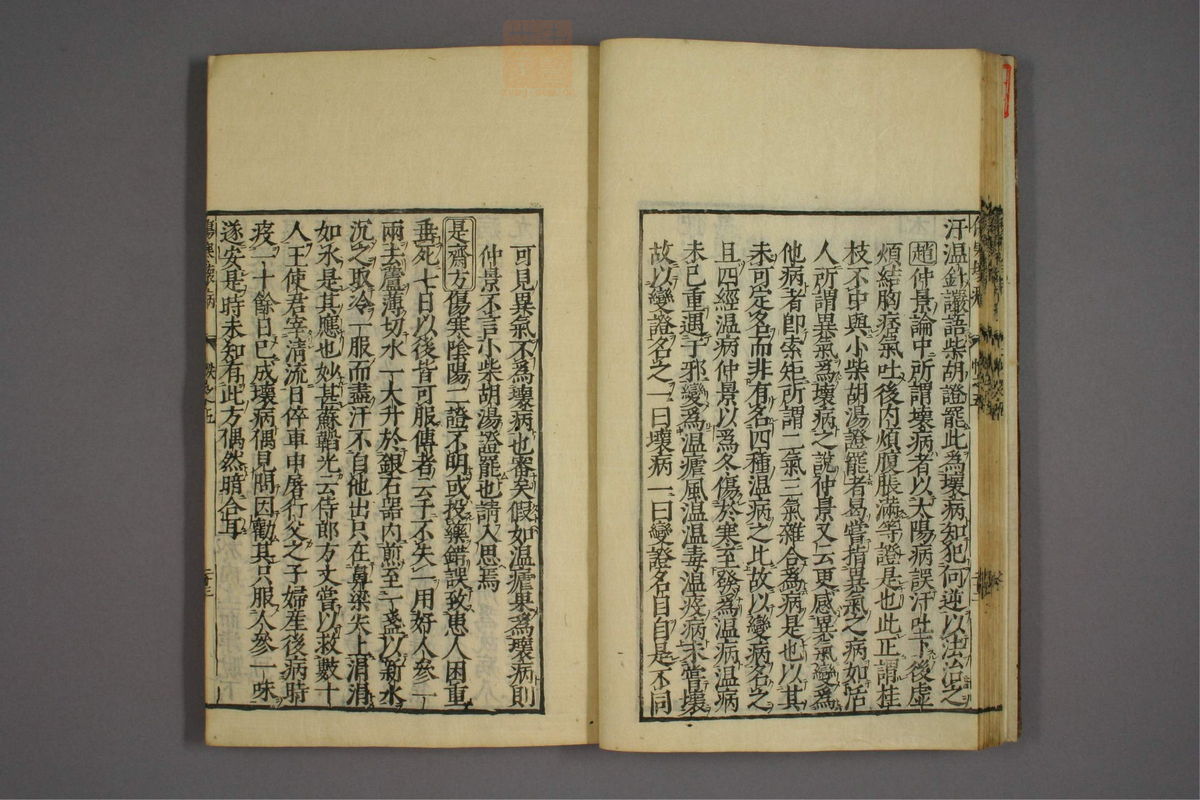 汗温針讝語柴胡證罷此為壞病知犯何逆以法治之
趙仲景論中所謂壞病者以太陽病誤汗吐下後虛
煩結胸痞氣吐後内煩腹脹滿等證是也此正謂桂
枝不中與小柴胡湯證罷者曷嘗指異氣之病如活
人所謂異氣為壞病之説仲景又云更感異氣變為
他病者即索矩所謂二氣三氣雜合為病是也以其
未可定名而非有名四種温病之比故以變病名之
且四經温病仲景以為冬傷於寒至發為温病温病
未已重遇于邪變為温瘧風温温毒温疫病未嘗壞
故以變證名之一曰壞病一曰變證名自自是不同
可見異氣不為壞病也審矣假如温瘧果為壞病則
仲景不言小柴胡湯證罷也請人思焉
是齋方傷寒陰陽二證不明或投藥錯誤致患人困重
垂死七日以後皆可服傳者云千不失一用好人參一
兩去蘆薄切水一大升於銀石器内煎至一盞以新水
沉之取冷一服而盡汗不自他出只在鼻梁尖上涓涓
如水是其應也妙甚蘇韜光云侍郎方丈嘗以救數十
人王使君宰清流日倅車申屠行父之子婦産後病時
疫二十餘日已成壞病偶見問因勸其只服人參一味
遂安是時未知有此方偶然暗合耳
傷寒壞病